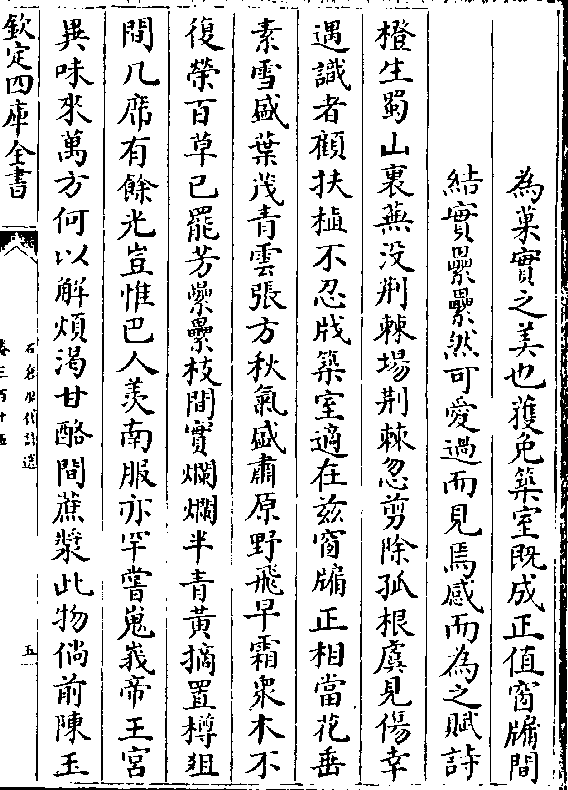 為菓實之美也獲免築室既成正值窗牖間
結實纍纍然可愛過而見焉感而為之賦詩
橙生蜀山裏蕪没荆棘場荆棘忽剪除孤根虞見傷幸
遇識者顧扶植不忍戕築室適在兹窗牖正相當花垂
素雪盛葉茂青雲張方秋氣盛肅原野飛早霜衆木不
復榮百草已罷芳纍纍枝間實爛爛半青黄摘置樽俎
間几席有餘光豈惟巴人羨南服亦罕嘗嵬峩帝王宫
異味來萬方何以解煩渴甘酪間蔗漿此物倘前陳玉
欽定四庫全書
石倉歴代詩選
卷三百十五
五